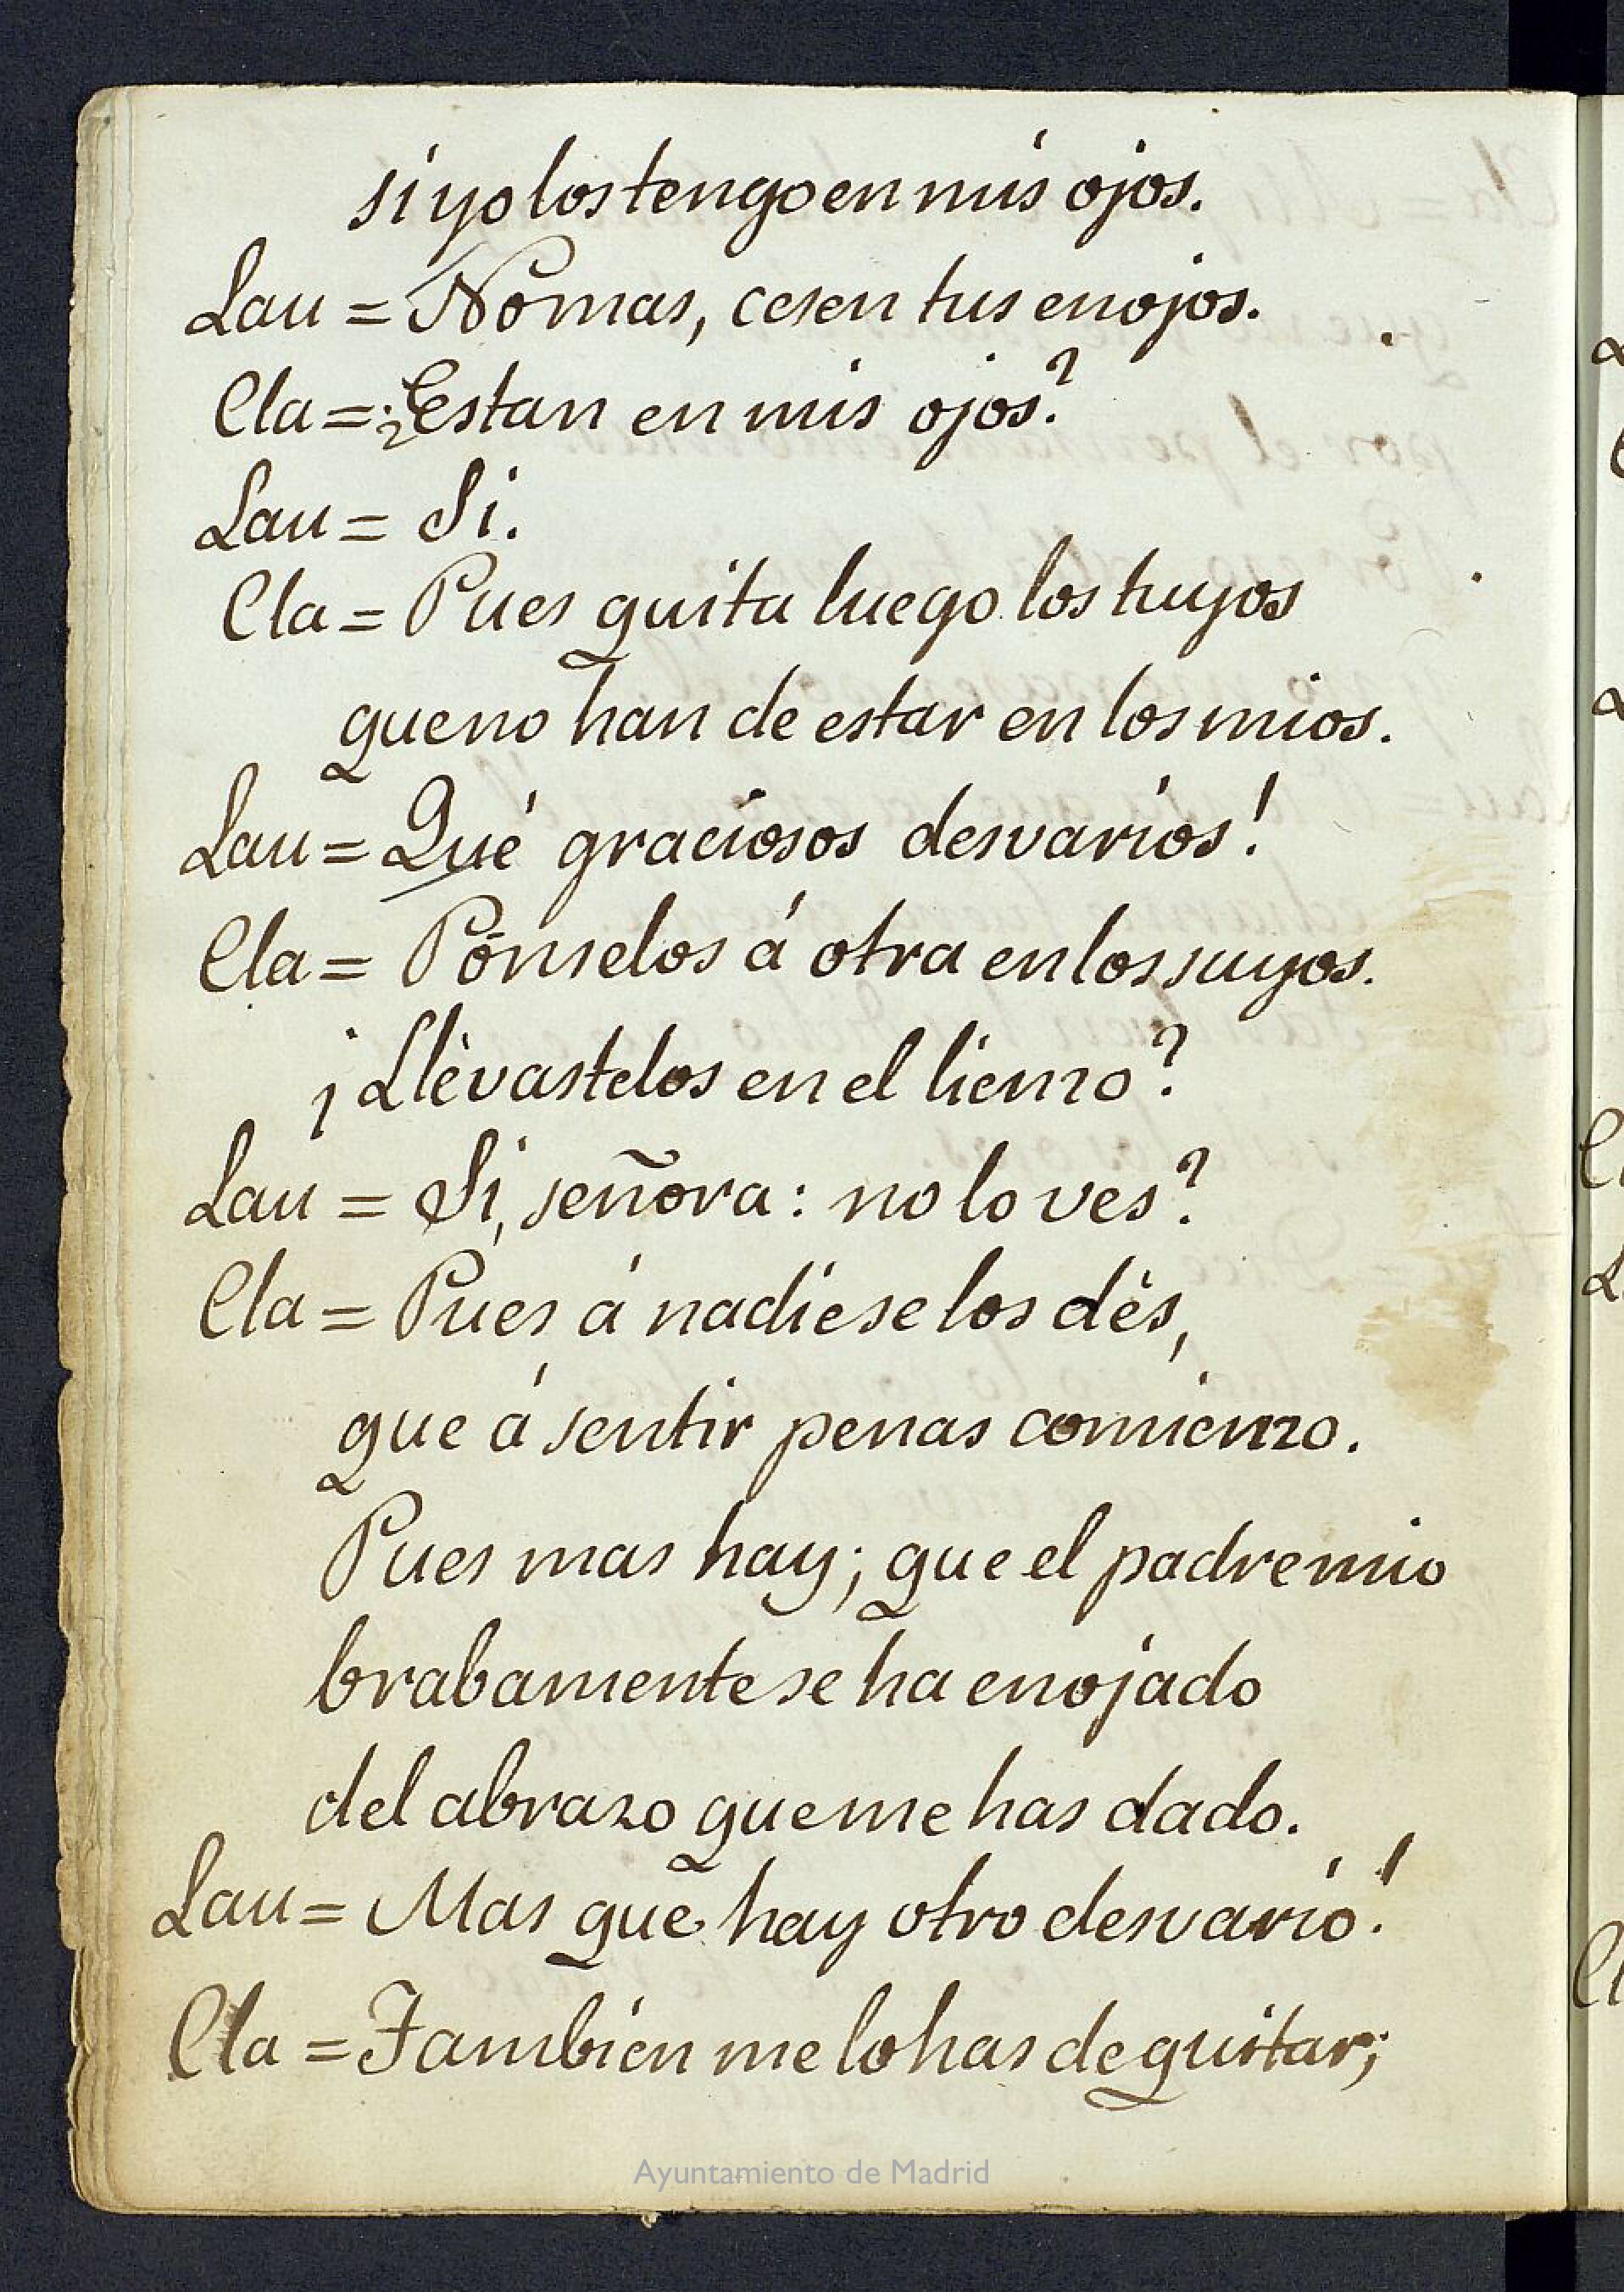 si yo los tengo en mis ojos.
Lau = No mas, cesen tus enojos.
Cla = ¿Estan en mis ojos?
Lau = Si.
Cla = Pues quita luego los tuyos
que no han de estar en los mios.
Lau = Qué graciosos desvaríos!
Cla = Pónselos á otra en los suyos.
¿Llévastelos en el lienzo?
Lau = Si, señora: no lo ves?
Cla = Pues á nadie se los dés,
que á sentir penas comienzo.
Pues mas hay; que el padre mio
brabamente se ha enojado
del abrazo que me has dado.
Lau = Mas que hay otro desvarío!
Cla = Tambien me lo has de quitar;
Ayuntamiento de Madrid